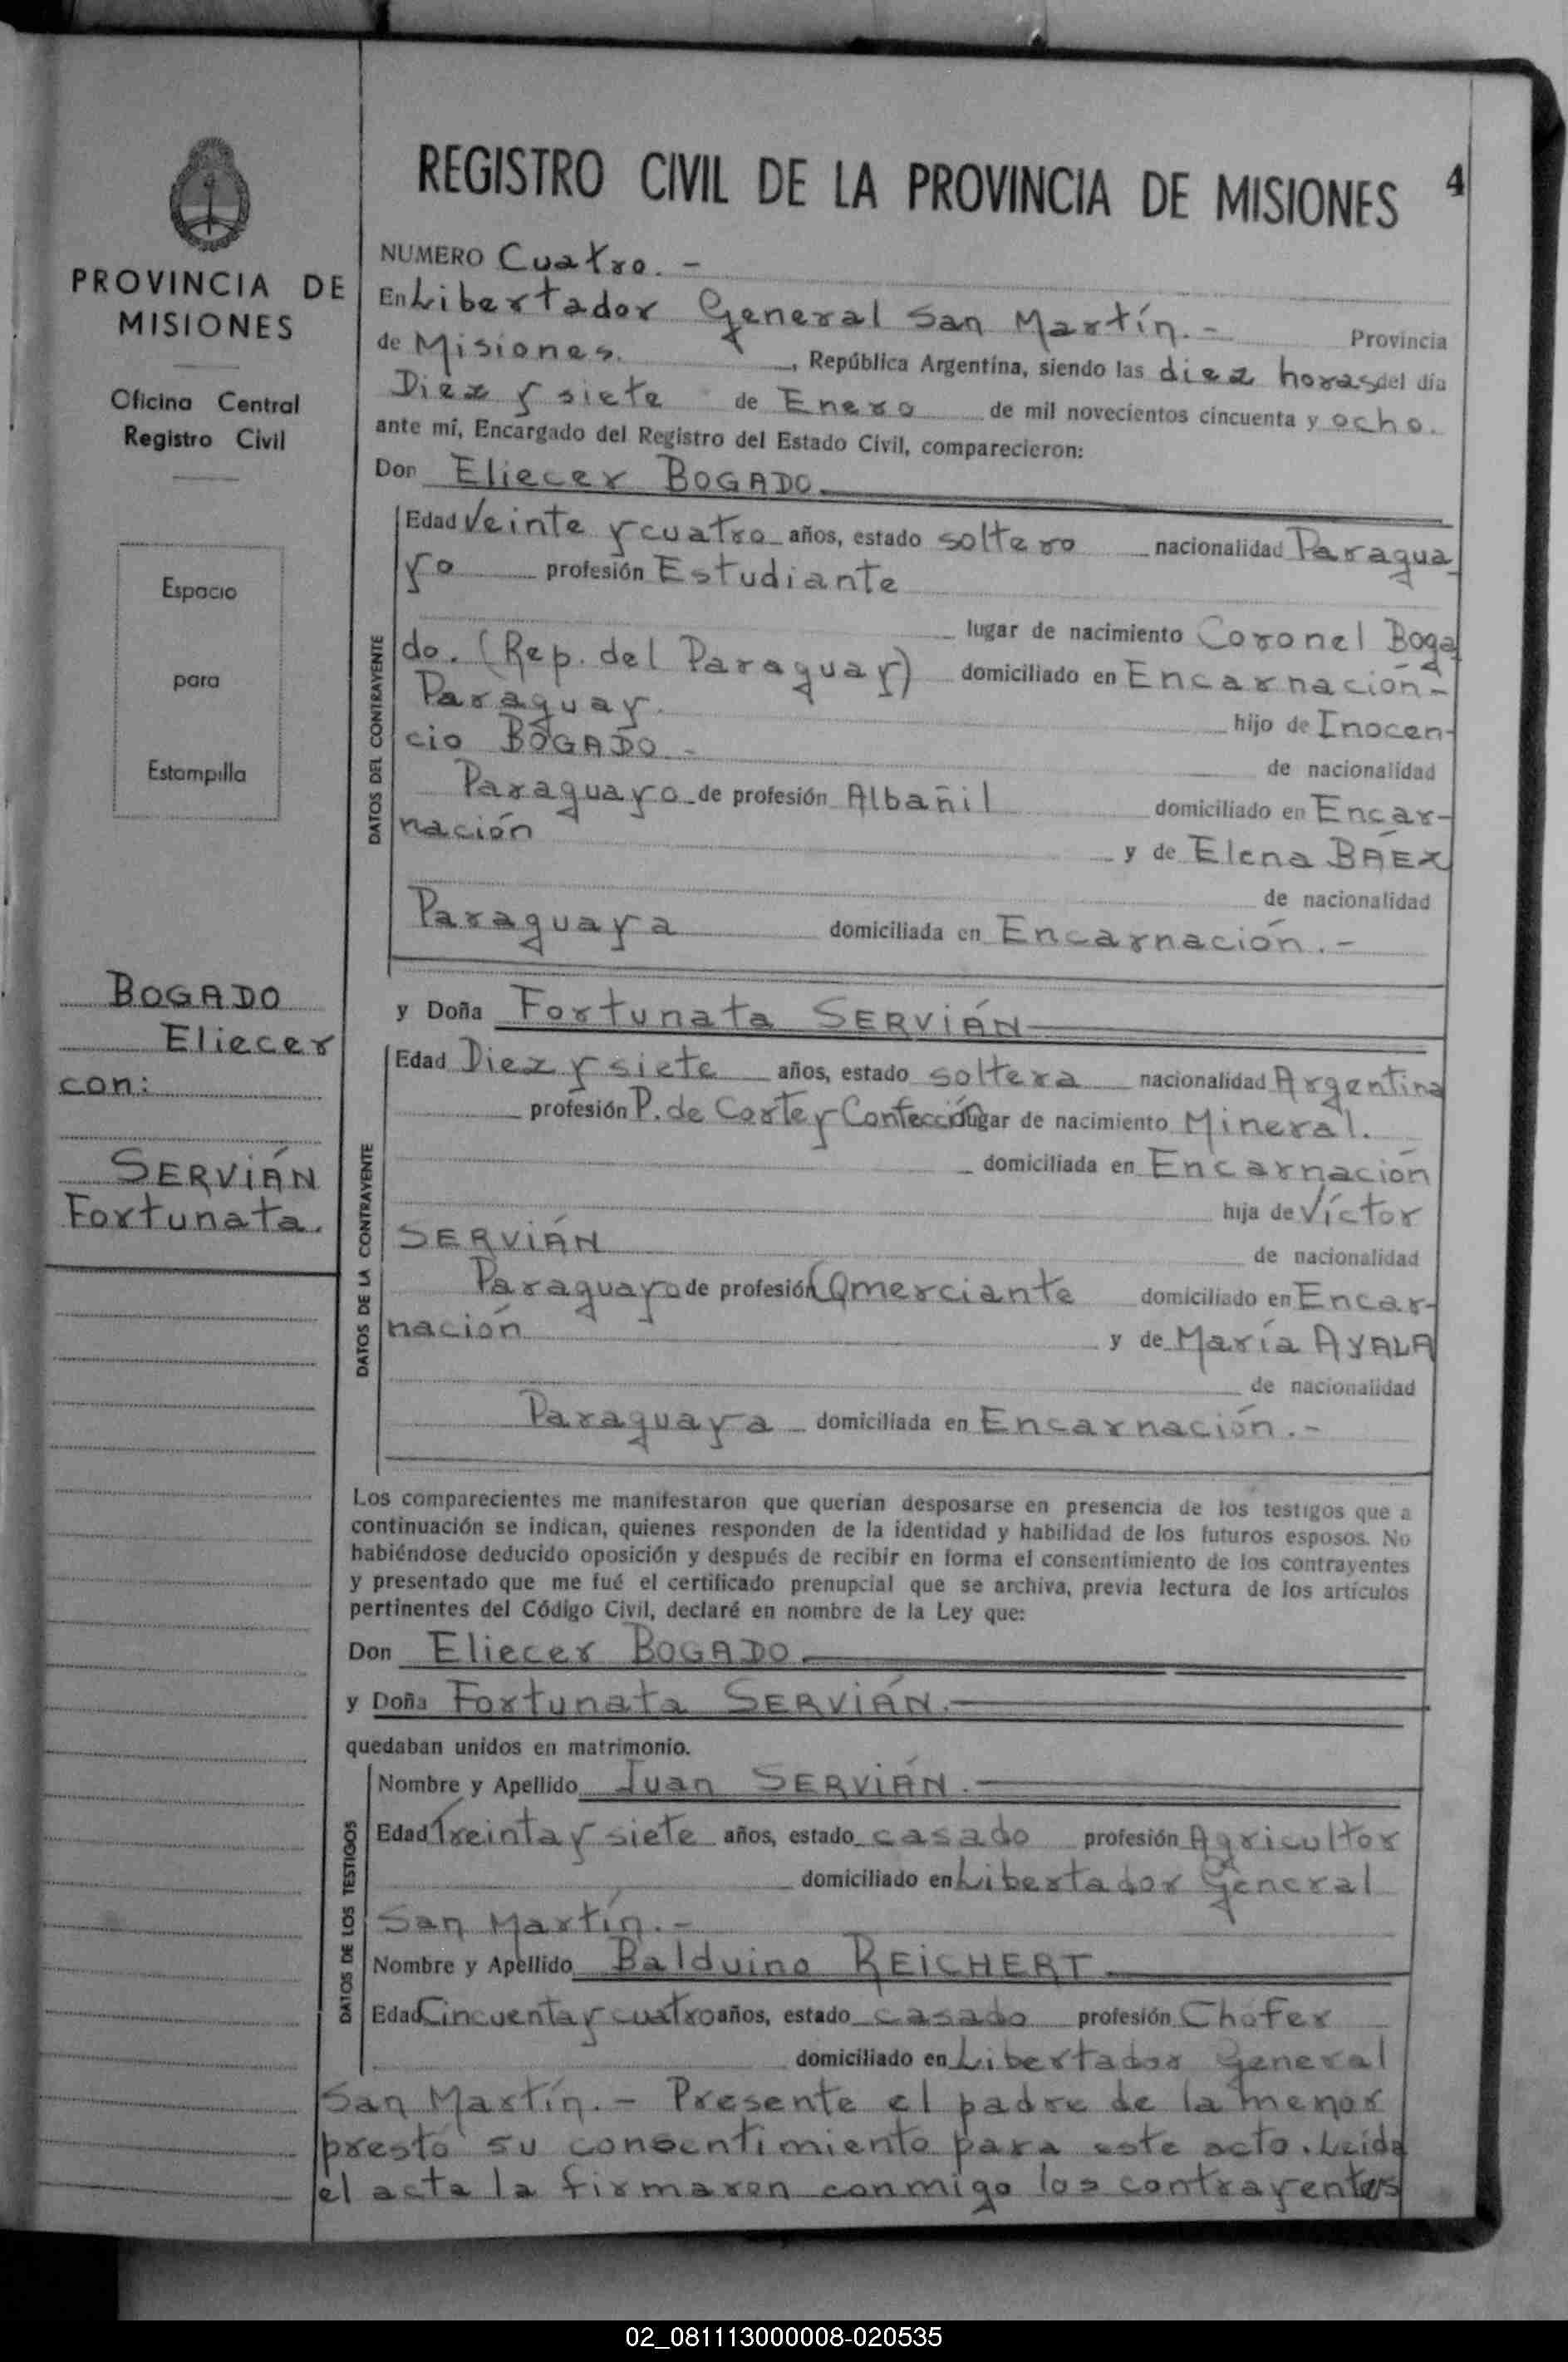 REGISTRO CIVIL DE LA PROVINCIA DE MISIONES 4
PROVINCIA DE
MISIONES
Oficina Central
Registro Civil
Espacio
para
Estampilla
BOGADO
Eliecer
con:
SERVIÁN
Fortunata.
NUMERO Cuatro. -
En Libertador General San Martín. - Provincia
de Misiones. , República Argentina, siendo las diez horas del día
Diez y siete de Enero de mil novecientos cincuenta y ocho.
ante mí, Encargado del Registro del Estado Civil, comparecieron:
Don Eliecer BOGADO
DATOS DEL CONTRAYENTE
Edad Veinte y cuatro años, estado soltero nacionalidad Paragua
yo profesión Estudiante
lugar de nacimiento Coronel Boga
do. (Rep. del Paraguay) domiciliado en Encarnación-
Paraguay. hijo de Inocen-
cio BOGADO - de nacionalidad
Paraguayo de profesión Albañil domiciliado en Encar-
nación y de Elena BÁEZ
de nacionalidad
Paraguaya domiciliada en Encarnación. -
y Doña Fortunata SERVIÁN
DATOS DE LA CONTRAYENTE
Edad Diez y siete años, estado soltera nacionalidad Argentina
profesión P. de Corte y Confección lugar de nacimiento Mineral.
domiciliada en Encarnación
hija de Víctor
SERVIÁN de nacionalidad
Paraguayo de profesión Comerciante domiciliado en Encar-
nación y de María AYALA
de nacionalidad
Paraguaya domiciliada en Encarnación. -
Los comparecientes me manifestaron que querían desposarse en presencia de los testigos que a
continuación se indican, quienes responden de la identidad y habilidad de los futuros esposos. No
habiéndose deducido oposición y después de recibir en forma el consentimiento de los contrayentes
y presentado que me fué el certificado prenupcial que se archiva, previa lectura de los artículos
pertinentes del Código Civil, declaré en nombre de la Ley que:
Don Eliecer BOGADO
y Doña Fortunata SERVIÁN.
quedaban unidos en matrimonio.
DATOS DE LOS TESTIGOS
Nombre y Apellido Juan SERVIÁN.
Edad Treinta y siete años, estado casado profesión Agricultor
domiciliado en Libertador General
San Martín. -
Nombre y Apellido Balduino REICHERT
Edad Cincuenta y cuatro años, estado casado profesión Chofer
domiciliado en Libertador General
San Martín. - Presente el padre de la menor
prestó su consentimiento para este acto. Leida
el acta la firmaron conmigo los contrayentes
02_081113000008-020535